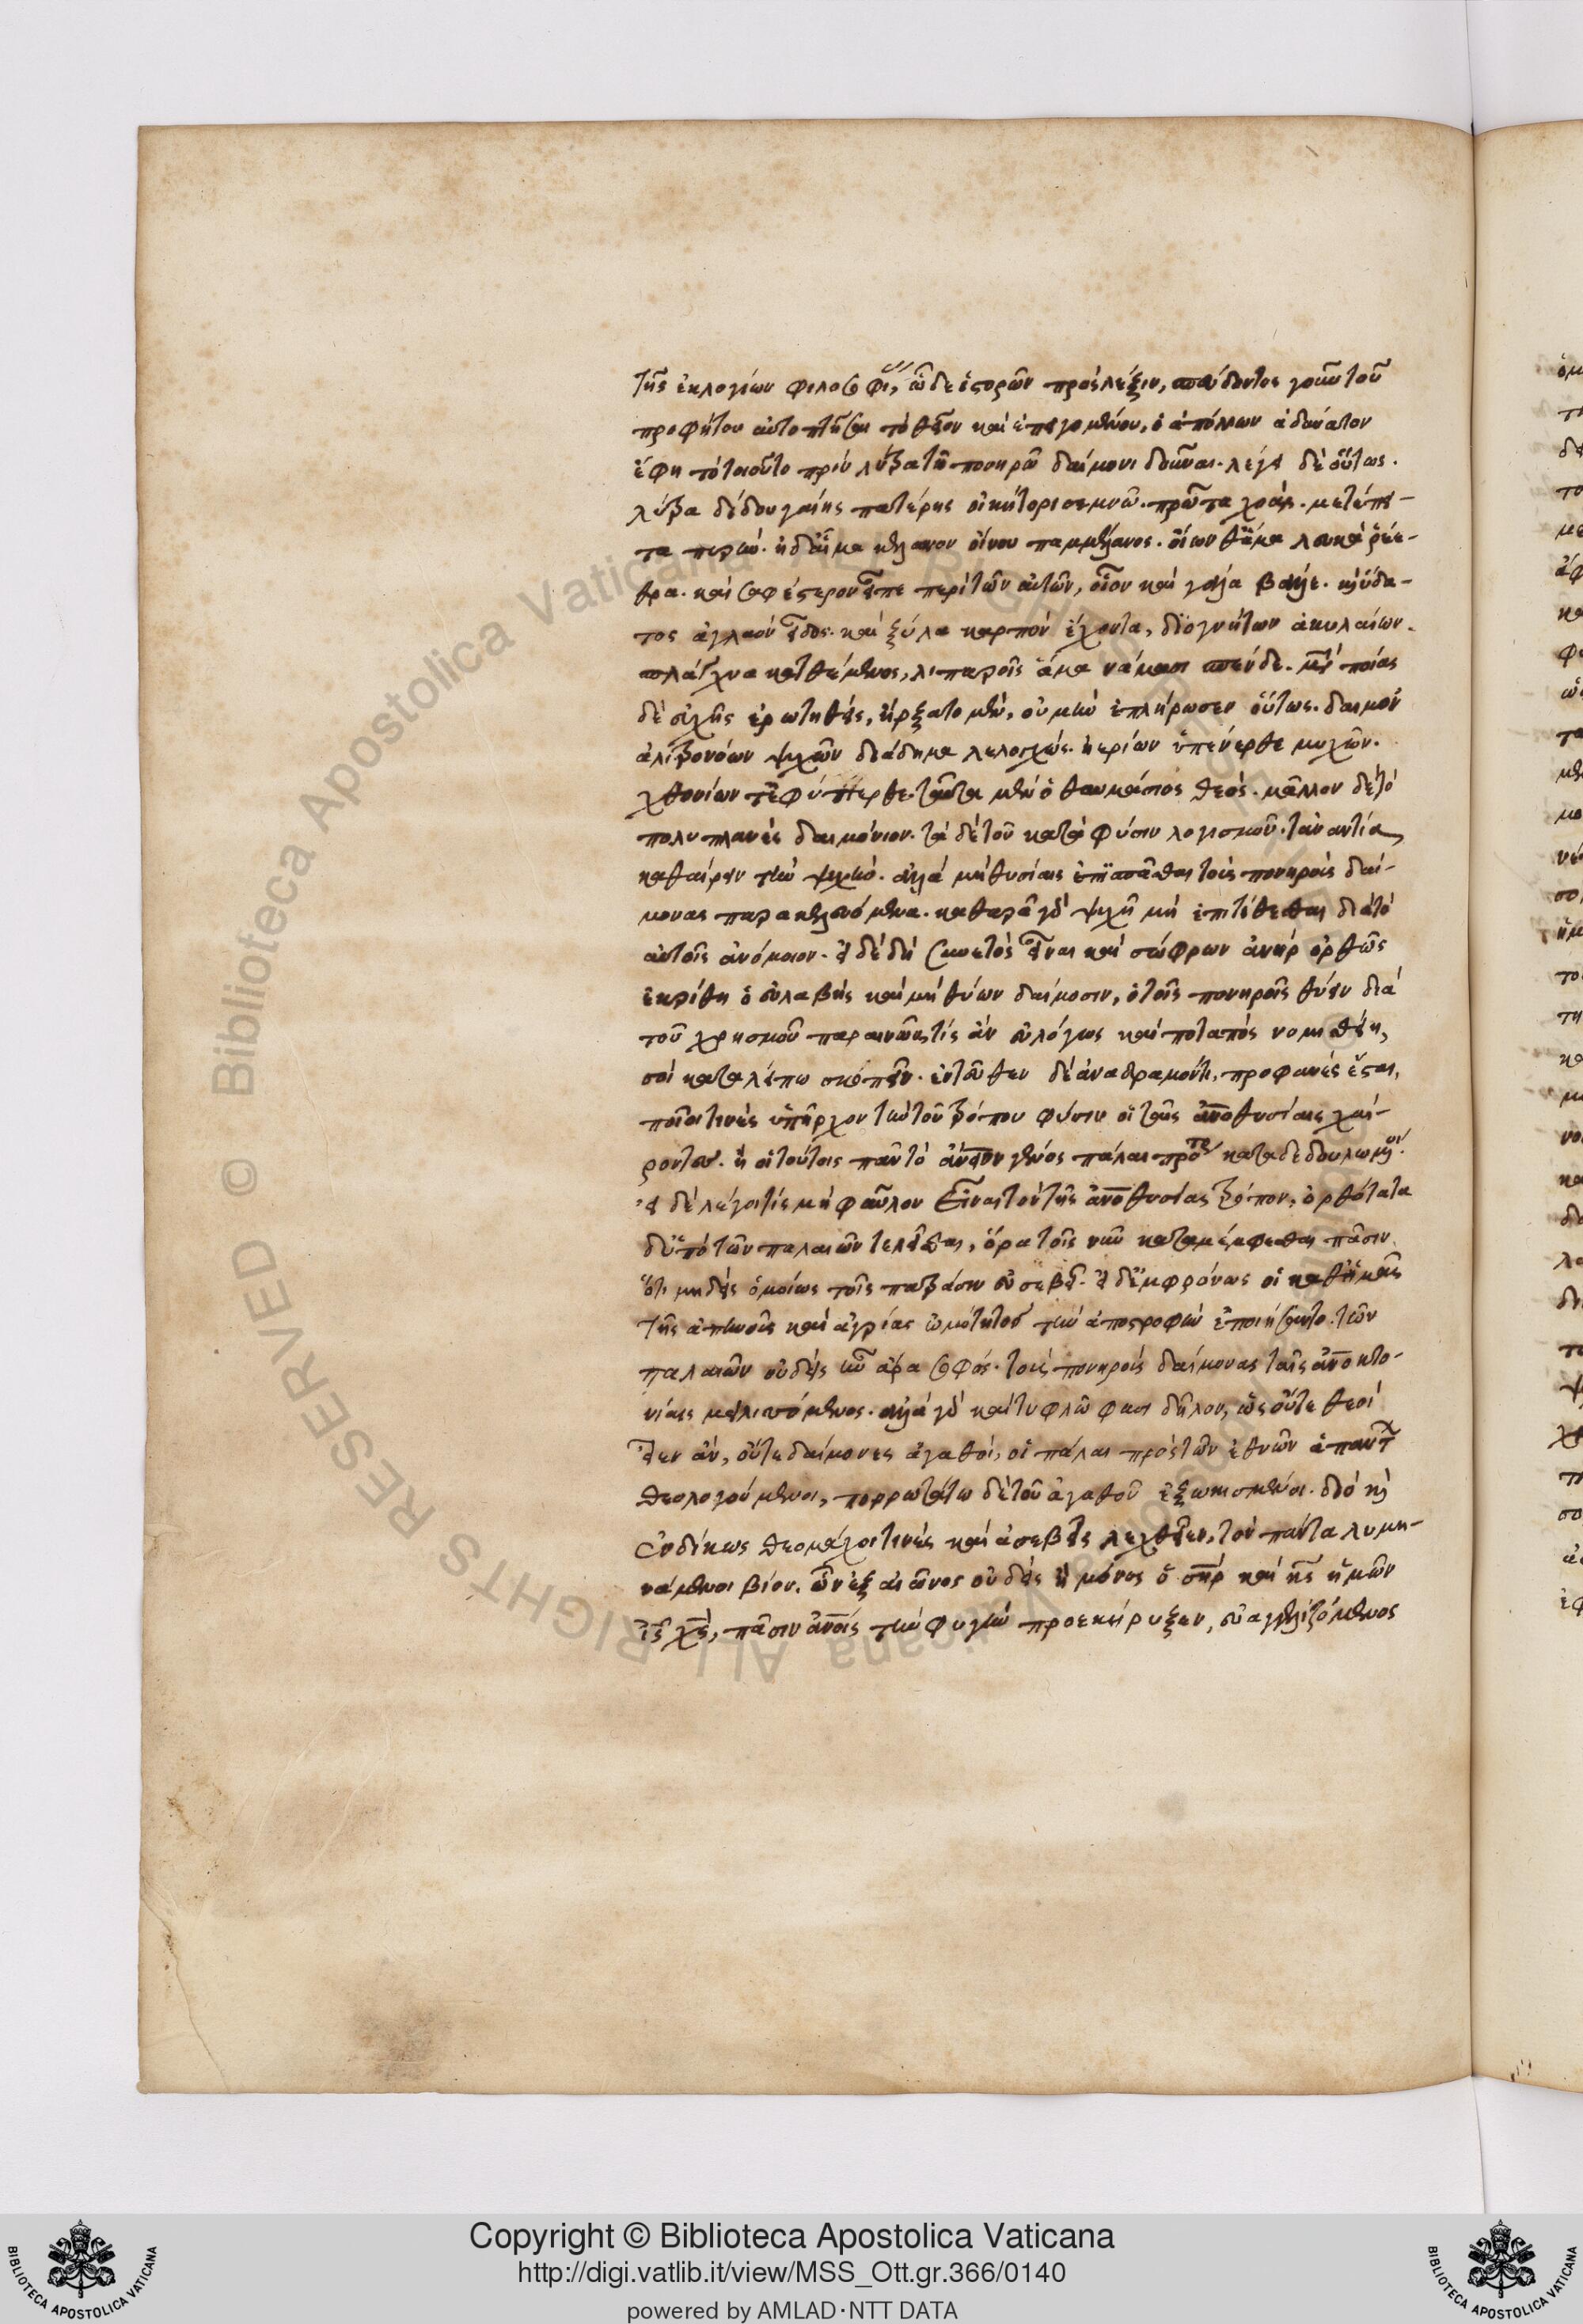 τῆς ἐκλογίων φιλοσοφίας, ὧδε ἱστορῶν πρὸς λέξιν, σπεύδοντος γοῦν τοῦ
προφήτου αὐτοπτῆσαι τὸ θεῖον καὶ ἐπειγομένου, ὁ ἀπόλλων ἀδύνατον
ἔφη τὸ τοιοῦτο πρὶν λύτρα τῶ πονηρῶ δαίμονι δοῦναι. λέγει δὲ οὕτως.
λύτρα δίδου γαίης πατέρης οἰκήτορι σεμνῶ. πρῶτα χοάς. μετέπει-
τα πυρὴν. ἠδ' αἷμα κελαινὸν οἴνου παμμέλανος. ὀΐων θ' ἅμα λευκὰ ῥέε-
θρα. καὶ σαφέστερον εἶπε περὶ τῶν αὐτῶν, οἶνον καὶ γάλα βάλλε. καὶ ὕδα-
τος ἀγλαὸν εἶδος. καὶ ξύλα καρπὸν ἔχοντα, διογνήτων ἀκυλαίων.
σπλάγχνα κατθέμενος, λιπαροῖς ἅμα νάμασι σπένδε. μετὰ ποίας
δὲ εὐχῆς ἐρωτηθεὶς, ἤρξατο μὲν, οὐ μὴν ἐπλήρωσεν οὕτως. δαῖμον
ἀλιτρονόων ψυχῶν διάδημα λελογχώς. ἠερίων ὑπένερθε μυχῶν.
χθονίων τ' ἐφύπερθε. ταῦτα μὲν ὁ θαυμάσιος θεός. μᾶλλον δὲ τὸ
πολυπλανὲς δαιμόνιον. τὰ δὲ τοῦ κατὰ φύσιν λογισμοῦ. τἀναντία,
καθαίρειν τὴν ψυχὴν. ἀλλὰ μὴ θυσίαις ἐπισπᾶσθαι τοὺς πονηροὺς δαί-
μονας παρακελευόμενα. καθαρᾶ γὰρ ψυχῆ μὴ ἐπιτίθεσθαι διὰ τὸ
αὐτοῖς ἀνόμοιον. εἰ δὲ δὴ συνετὸς εἶναι καὶ σώφρων ἀνὴρ ὀρθῶς
ἐκρίθη ὁ εὐλαβὴς καὶ μὴ θύων δαίμοσιν, ὁ τοῖς πονηροῖς θύειν διὰ
τοῦ χρησμοῦ παραινῶν τίς ἂν εὐλόγως καὶ ποταπὸς νομισθείη,
σοὶ καταλείπω σκοπεῖν. ἐντεῦθεν δὲ ἀναδραμόντι, προφανὲς ἔσται,
ποῖοι τινὲς ὑπῆρχον τὴν τοῦ τρόπου φύσιν οἱ ταῖς ἀνθρωποθυσίαις χαί-
ροντες. ἢ οἱ τούτοις πᾶν τὸ ἀνθρώπειον γένος πάλαι πρότερον καταδεδουλωμένοι.
εἰ δὲ λέγοι τίς μὴ φαῦλον εἶναι τὸν τῆς ἀνθρωποθυσίας τρόπον, ὀρθότατα
δ' ὑπὸ τῶν παλαιῶν τελεῖσθαι, ὅρα τοῖς νῦν καταμέμφεσθαι πᾶσιν.
ὅτι μηδεὶς ὁμοίως τοῖς πατράσιν εὐσεβεῖ. εἰ δ' ἐμφρόνως οἱ καθ' ἡμᾶς
τῆς ἀπηνοῦς καὶ ἀγρίας ὠμότητος τὴν ἀποστροφὴν ἐποιήσαντο. τῶν
παλαιῶν οὐδεὶς ἦν ἄρα σοφός. τοὺς πονηροὺς δαίμονας ταῖς ἀνθρωποκτο-
νίαις μειλισσόμενος. ἀλλὰ γὰρ καὶ τυφλῶ φασι δῆλον, ὡς οὔτε θεοὶ
εἶεν ἂν, οὔτε δαίμονες ἀγαθοί, οἱ πάλαι πρὸς τῶν ἐθνῶν ἁπάντων
θεολογούμενοι, πορρωτάτω δὲ τοῦ ἀγαθοῦ ἐξωκισμένοι. διὸ καὶ
ἐνδίκως θεομάχοι τινὲς καὶ ἀσεβεῖς λεχθεῖεν, τὸν πάντα λυμη-
νάμενοι βίον. ὧν ἐξ αἰῶνος οὐδεὶς ἢ μόνος ὁ σωτὴρ καὶ κύριος ἡμῶν
ἰησοῦς χριστὸς, πᾶσιν ἀνθρώποις τὴν φυγὴν προεκήρυξεν, εὐαγγελιζόμενος
Copyright © Biblioteca Apostolica Vaticana
http://digi.vatlib.it/view/MSS_Ott.gr.366/0140
powered by AMLAD·NTT DATA
BIBLIOTECA APOSTOLICA VATICANA
BIBLIOTECA APOSTOLICA VATICANA
© Biblioteca Apostolica Vaticana ALL RIGHTS RESERVED